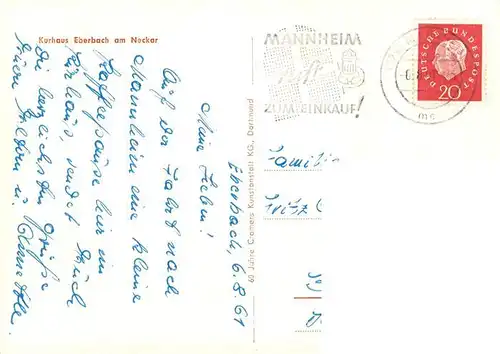 Kurhaus Eberbach am Neckar
Eberbach, 6.8.61
Meine Lieben!
Auf der Fahrt nach
Mannheim eine kleine
Kaffeepause hier im
Kurhaus, sendet Euch
die herzlichsten Grüße
Eueren
60 Jahre Cramers Kunstanstalt KG., Dortmund
MANNHEIM
ruft
ZUM EINKAUF!
DEUTSCHE BUNDESPOST
20
mc
Familie
Fritz